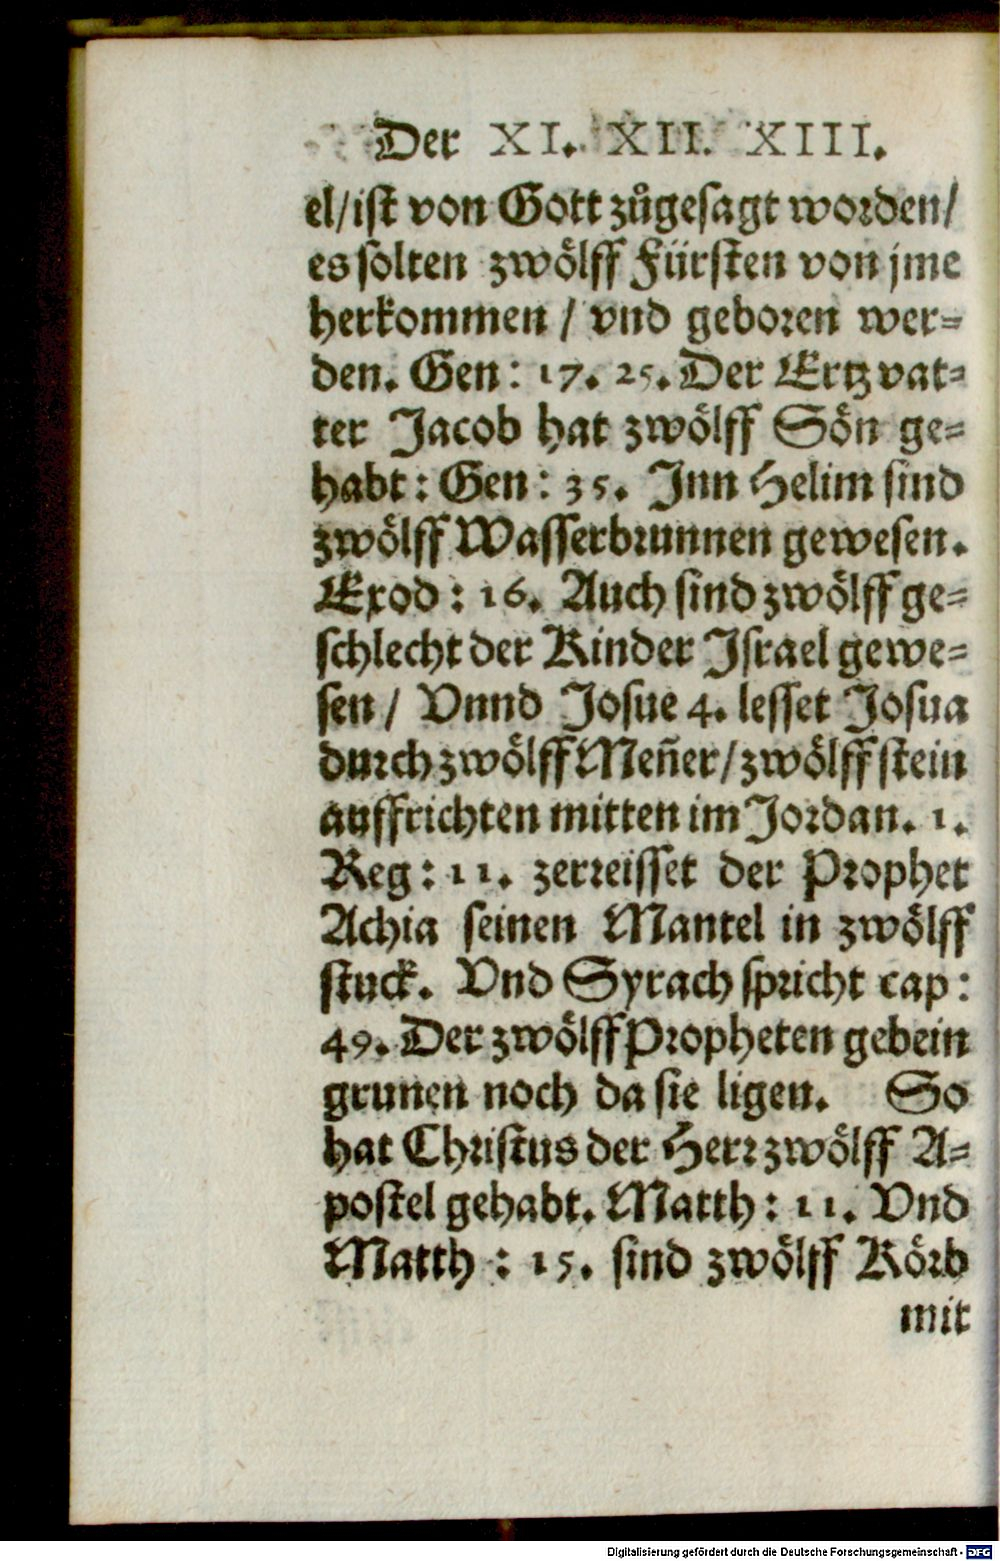 Der XI. XII. XIII.
el/ist von Gott zůgesagt worden/
es solten zwölff Fürsten von jme
herkommen / vnd geboren wer-
den. Gen: 17. 25. Der Ertzvat-
ter Jacob hat zwölff Sön ge-
habt: Gen: 35. Jnn Helim sind
zwölff Wasserbrunnen gewesen.
Exod: 16. Auch sind zwölff ge-
schlecht der Kinder Jsrael gewe-
sen / Vnnd Josue 4. lesset Josua
durch zwölff Meñer/zwölff stein
auffrichten mitten im Jordan. 1.
Reg: 11. zerreisset der Prophet
Achia seinen Mantel in zwölff
stuck. Vnd Syrach spricht cap:
49. Der zwölff Propheten gebein
grunen noch da sie ligen. So
hat Christus der Herr zwölff A-
postel gehabt. Matth: 11. Vnd
Matth: 15. sind zwölff Körb
mit
Digitalisierung gefördert durch die Deutsche Forschungsgemeinschaft - DFG